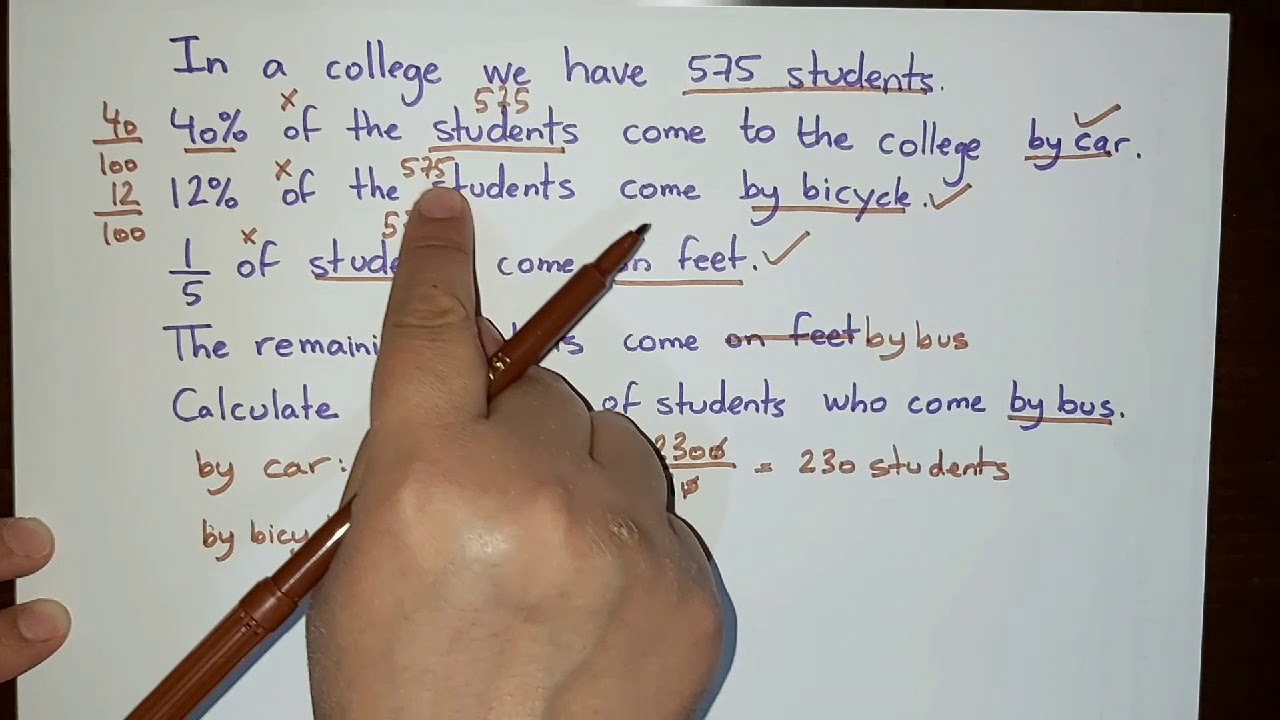 In a college we have 575 students.
575
40/100 40% × of the students come to the college by car. ✓
575
12/100 12% × of the students come by bicycle. ✓
1/5 × of come feet. ✓
The come on feet by bus
Calculate of students who come by bus.
by car: = 230 students
by